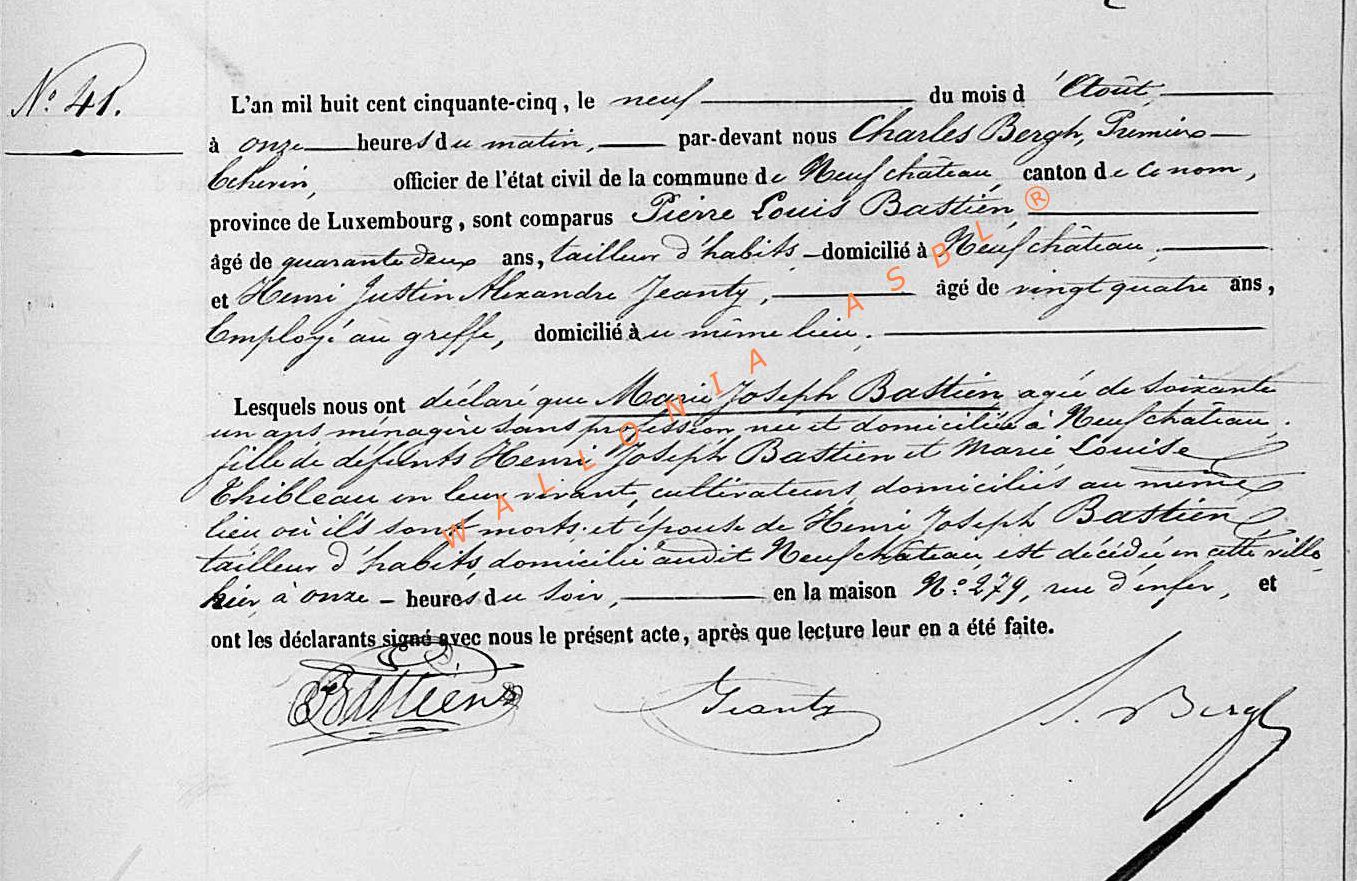 N.° 41.
L'an mil huit cent cinquante-cinq, le neuf du mois d'Août,
à onze heures du matin, par-devant nous Charles Bergh, Premier
Echevin, officier de l'état civil de la commune de Neufchâteau, canton de ce nom,
province de Luxembourg, sont comparus Pierre Louis Bastien,
âgé de quarante deux ans, tailleur d'habits domicilié à Neufchâteau,
et Henri Justin Alexandre Jeanty, âgé de vingt quatre ans,
Employé au greffe, domicilié au même lieu,
Lesquels nous ont déclaré que Marie Joseph Bastien agée de soixante
un ans ménagère sans profession née et domiciliée à Neufchâteau,
fille de défunts Henri Joseph Bastien et Marie Louise
Thibleau en leur vivant, cultivateurs, domiciliés au même
lieu où ils sont morts; et épouse de Henri Joseph Bastien
tailleur d'habits, domicilié audit Neufchâteau, est décédée en cette ville
hier, à onze – heures du soir, en la maison N.° 279, rue d'enfer, et
ont les déclarants signé avec nous le présent acte, après que lecture leur en a été faite.
Bastien Jeanty Bergh
WALLONIA ASBL ®